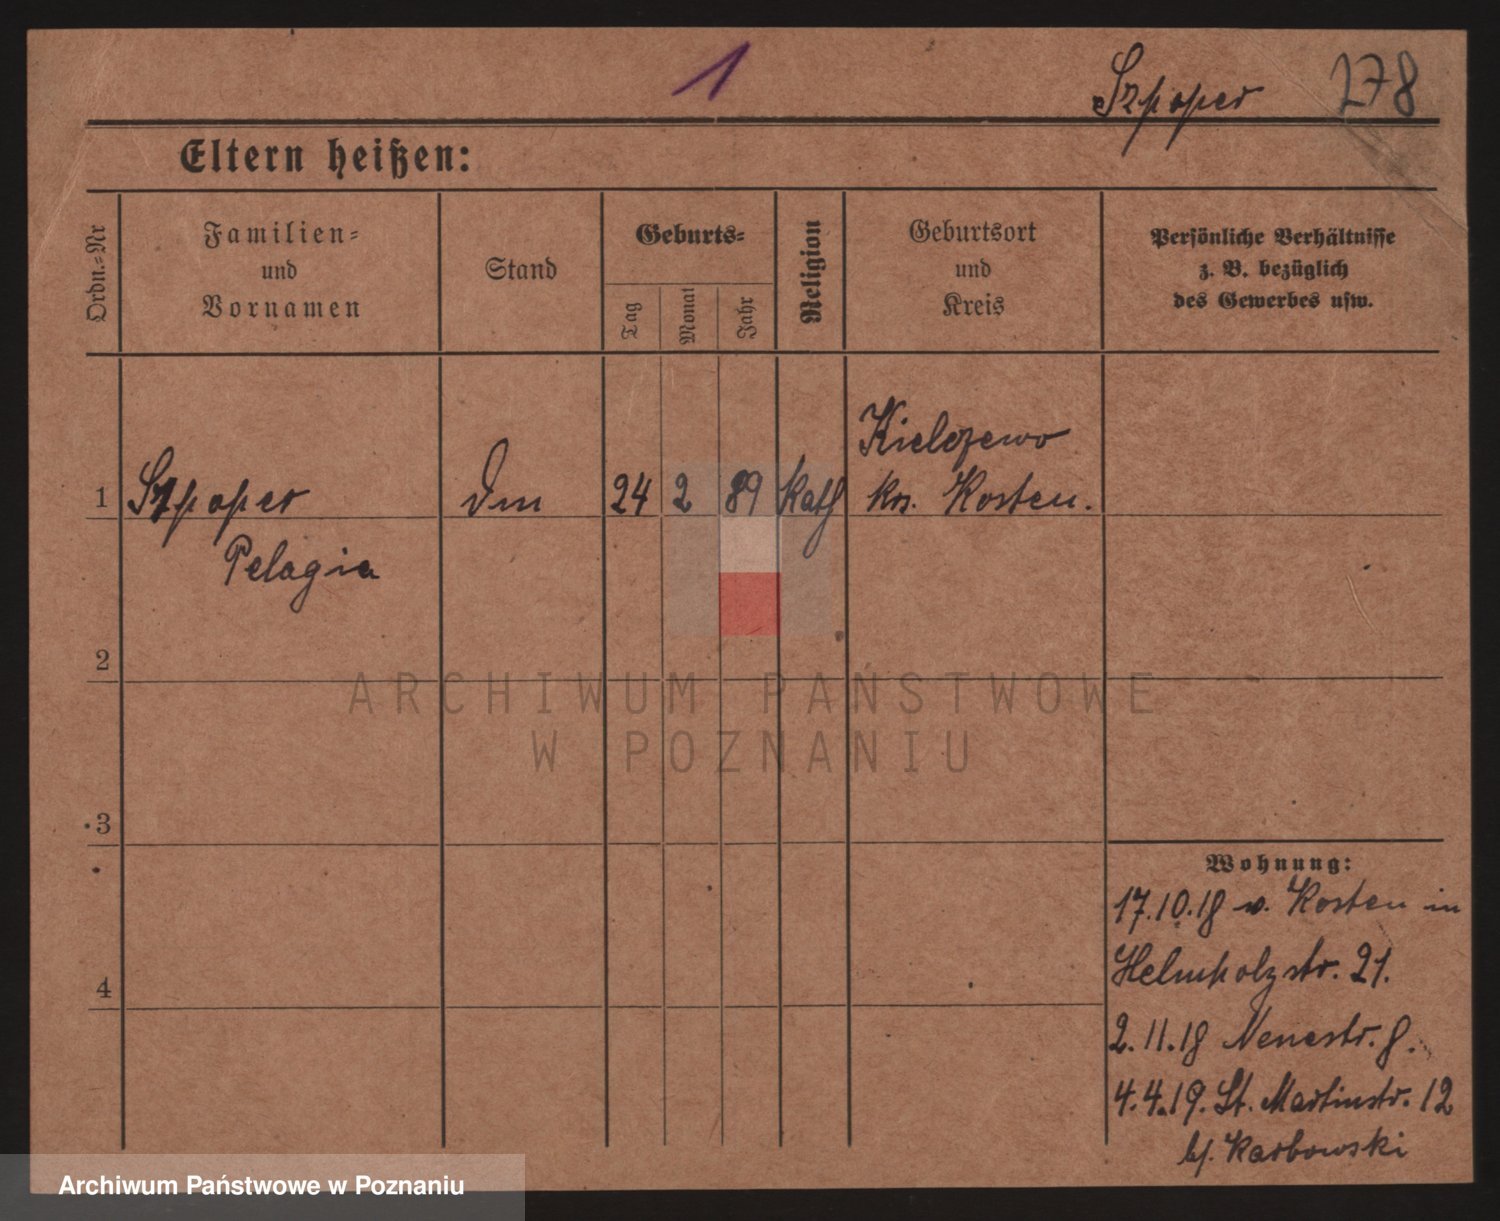 1
Szpoper 278
Eltern heißen:
Ordn.=Nr
Familien=
und
Vornamen
Stand
Geburts=
Tag
Monat
Jahr
Religion
Geburtsort
und
Kreis
Persönliche Verhältnisse
z. B. bezüglich
des Gewerbes usw.
Kielczewo
1 Szpoper 24 2 89 kath krs. Kosten.
Pelagia
2
3
4
Wohnung:
17.10.18 v. Kosten in
Helmholzstr. 21.
2.11.18 Neuestr. 8.
4.4.19. St. Martinstr. 12
b/. Karbowski
ARCHIWUM PAŃSTWOWE
W POZNANIU
Archiwum Państwowe w Poznaniu